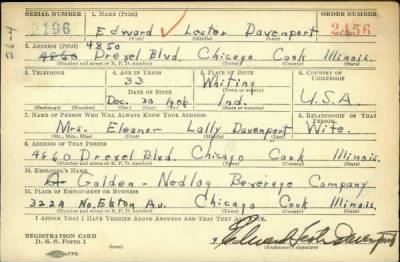 SERIAL NUMBER 1. NAME (Print) ORDER NUMBER
2196 Edward Lester Davenport 2456
(First) (Middle) (Last)
2. ADDRESS (Print) 4850
4860 Drexel Blvd. Chicago Cook Illinois.
(Number and street or R. F. D. number) (Town) (County) (State)
3. TELEPHONE 4. AGE IN YEARS 5. PLACE OF BIRTH 6. COUNTRY OF CITIZENSHIP
33 Whiting
DATE OF BIRTH (Town or county)
Dec. 30 1906 Ind. U.S.A
(Exchange) (Number) (Mo.) (Day) (Yr.) (State or country)
7. NAME OF PERSON WHO WILL ALWAYS KNOW YOUR ADDRESS 8. RELATIONSHIP OF THAT PERSON
Mrs. Eleanor Lally Davenport Wife.
(Mr., Mrs., Miss) (First) (Middle) (Last)
9. ADDRESS OF THAT PERSON
4860 Drexel Blvd. Chicago Cook Illinois.
(Number and street or R. F. D. number) (Town) (County) (State)
10. EMPLOYER'S NAME
Golden - Nedlog Beverage Company
11. PLACE OF EMPLOYMENT OR BUSINESS
3224 No. Elston Av. Chicago Cook Illinois.
(Number and street or R. F. D. number) (Town) (County) (State)
I AFFIRM THAT I HAVE VERIFIED ABOVE ANSWERS AND THAT THEY ARE TRUE.
REGISTRATION CARD
D. S. S. FORM 1 Edward Lester Davenport